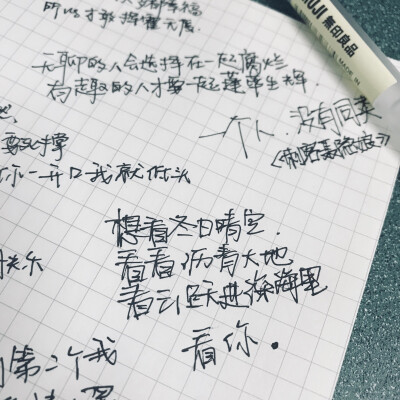 所以才敢挥霍无度
无聊的人会选择在一起腐烂
有趣的人才要一起蓬荜生辉
一个人.没有同类
《刺客聂隐娘》
你一开口我就低头
想看冬日晴空.
看看沥青大地
看云跃进深海里
看你.
快乐
第二个我
MUJI 無印良品
MADE IN